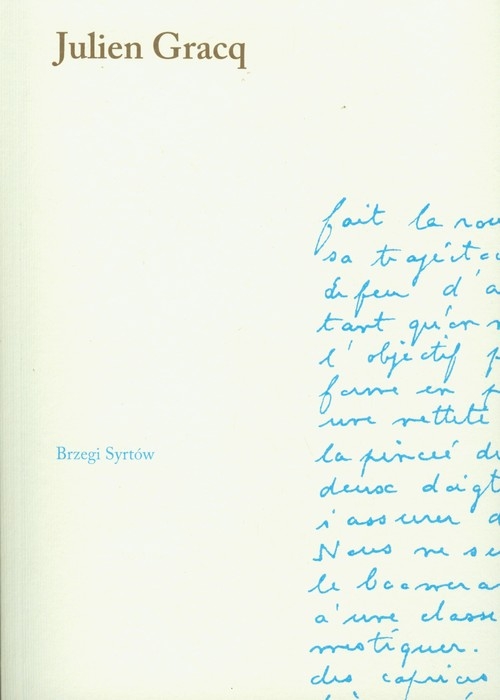 Julien Gracq
Brzegi Syrtów
fait la rou
sa trajecto
de feu d'a
tant qu'on n
l'objectif p
forme en p
une netteté
la pincée du
deux doigt
s'assurer d
Nous ne su
le boomera
d'une classe
mestiquer.
des caprices